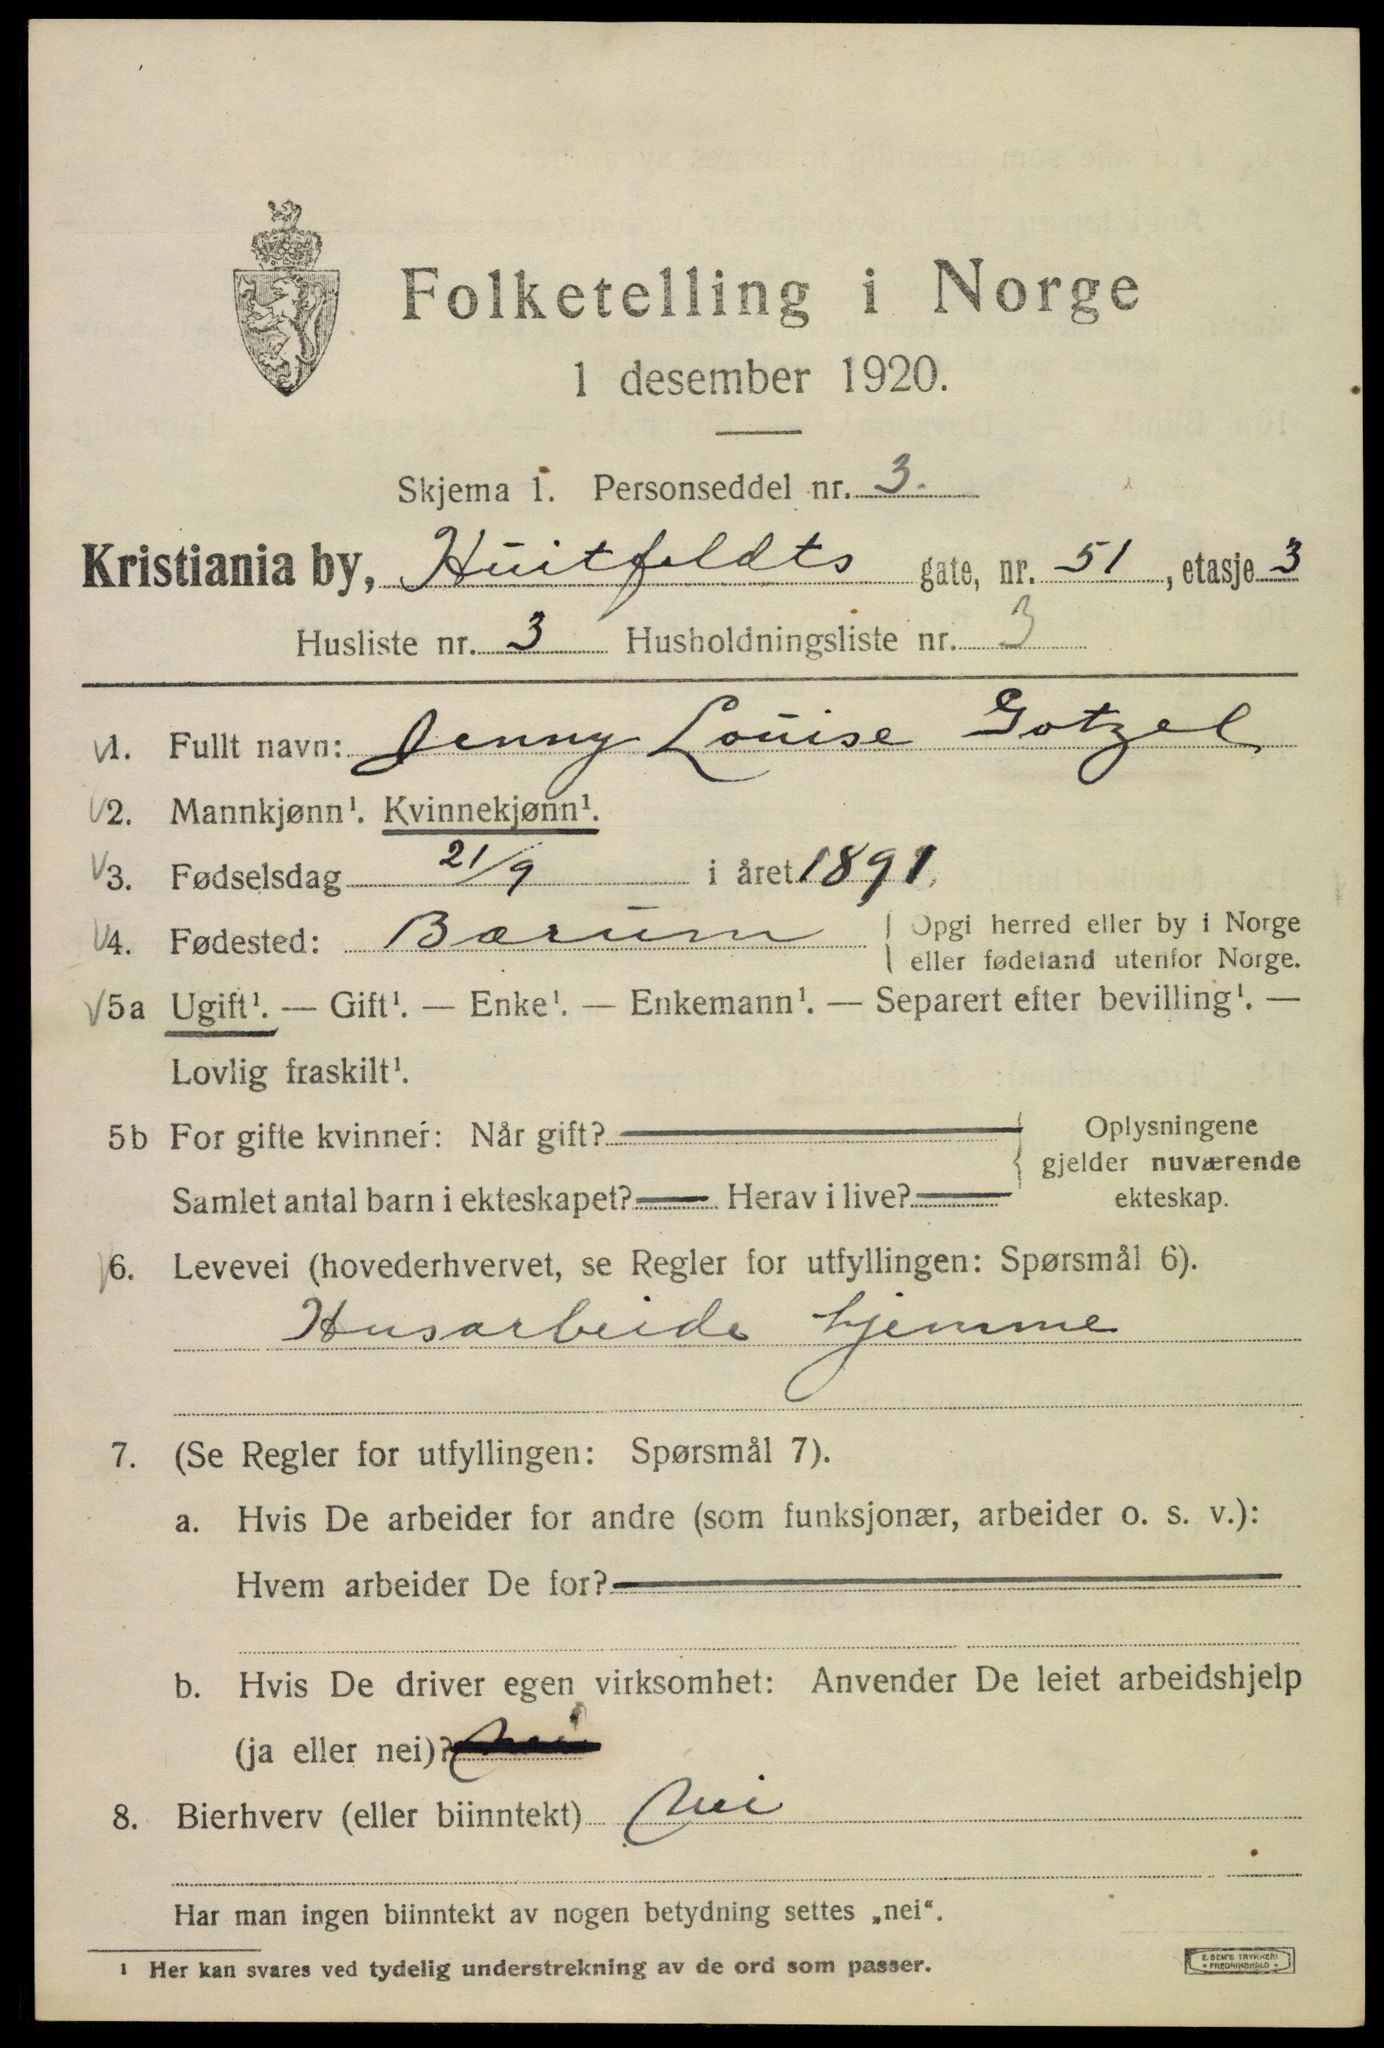 Folketelling i Norge
1 desember 1920.
Skjema 1. Personseddel nr. 3.
Kristiania by, Huitfeldts gate, nr. 51, etasje 3
Husliste nr. 3 Husholdningsliste nr. 3
1. Fullt navn: Jenny Louise Gotzel
2. Mannkjønn¹. Kvinnekjønn¹.
3. Fødselsdag 21/9 i året 1891.
4. Fødested: Bærum { Opgi herred eller by i Norge
eller fødeland utenfor Norge.
5a Ugift¹. — Gift¹. — Enke¹. — Enkemann¹. — Separert efter bevilling¹. —
Lovlig fraskilt¹.
5b For gifte kvinner: Når gift? } Oplysningene
gjelder nuværende
Samlet antal barn i ekteskapet? Herav i live? ekteskap.
6. Levevei (hovederhvervet, se Regler for utfyllingen: Spørsmål 6).
Husarbeide hjemme
7. (Se Regler for utfyllingen: Spørsmål 7).
a. Hvis De arbeider for andre (som funksjonær, arbeider o. s. v.):
Hvem arbeider De for?
b. Hvis De driver egen virksomhet: Anvender De leiet arbeidshjelp
(ja eller nei)? nei
8. Bierhverv (eller biinntekt) Nei
Har man ingen biinntekt av nogen betydning settes „nei“.
¹ Her kan svares ved tydelig understrekning av de ord som passer.
E. SEM'S TRYKKERI
• FREDRIKSHALD •